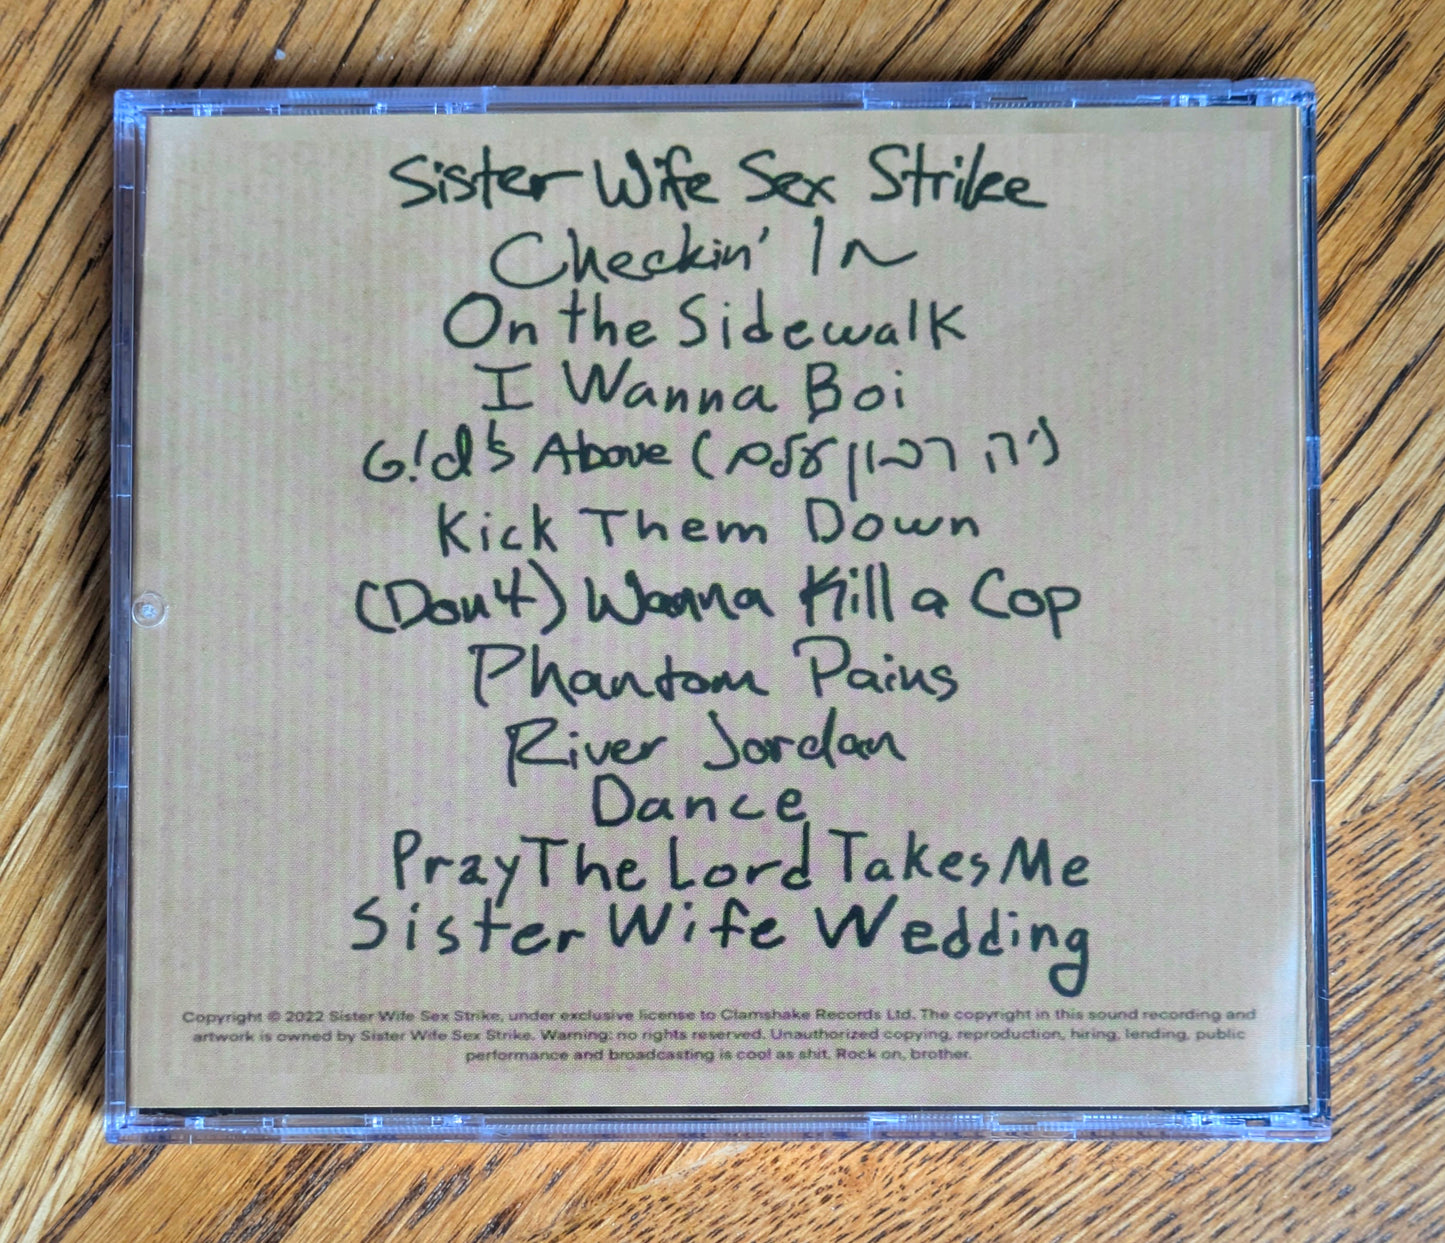 Sister Wife Sex Strike
Checkin' In
On the Sidewalk
I Wanna Boi
G!d's Above (יה רבון עלם)
Kick Them Down
(Don't) Wanna Kill a Cop
Phantom Pains
River Jordan
Dance
Pray The Lord Takes Me
Sister Wife Wedding
Copyright © 2022 Sister Wife Sex Strike, under exclusive license to Clamshake Records Ltd. The copyright in this sound recording and
artwork is owned by Sister Wife Sex Strike. Warning: no rights reserved. Unauthorized copying, reproduction, hiring, lending, public
performance and broadcasting is cool as shit. Rock on, brother.